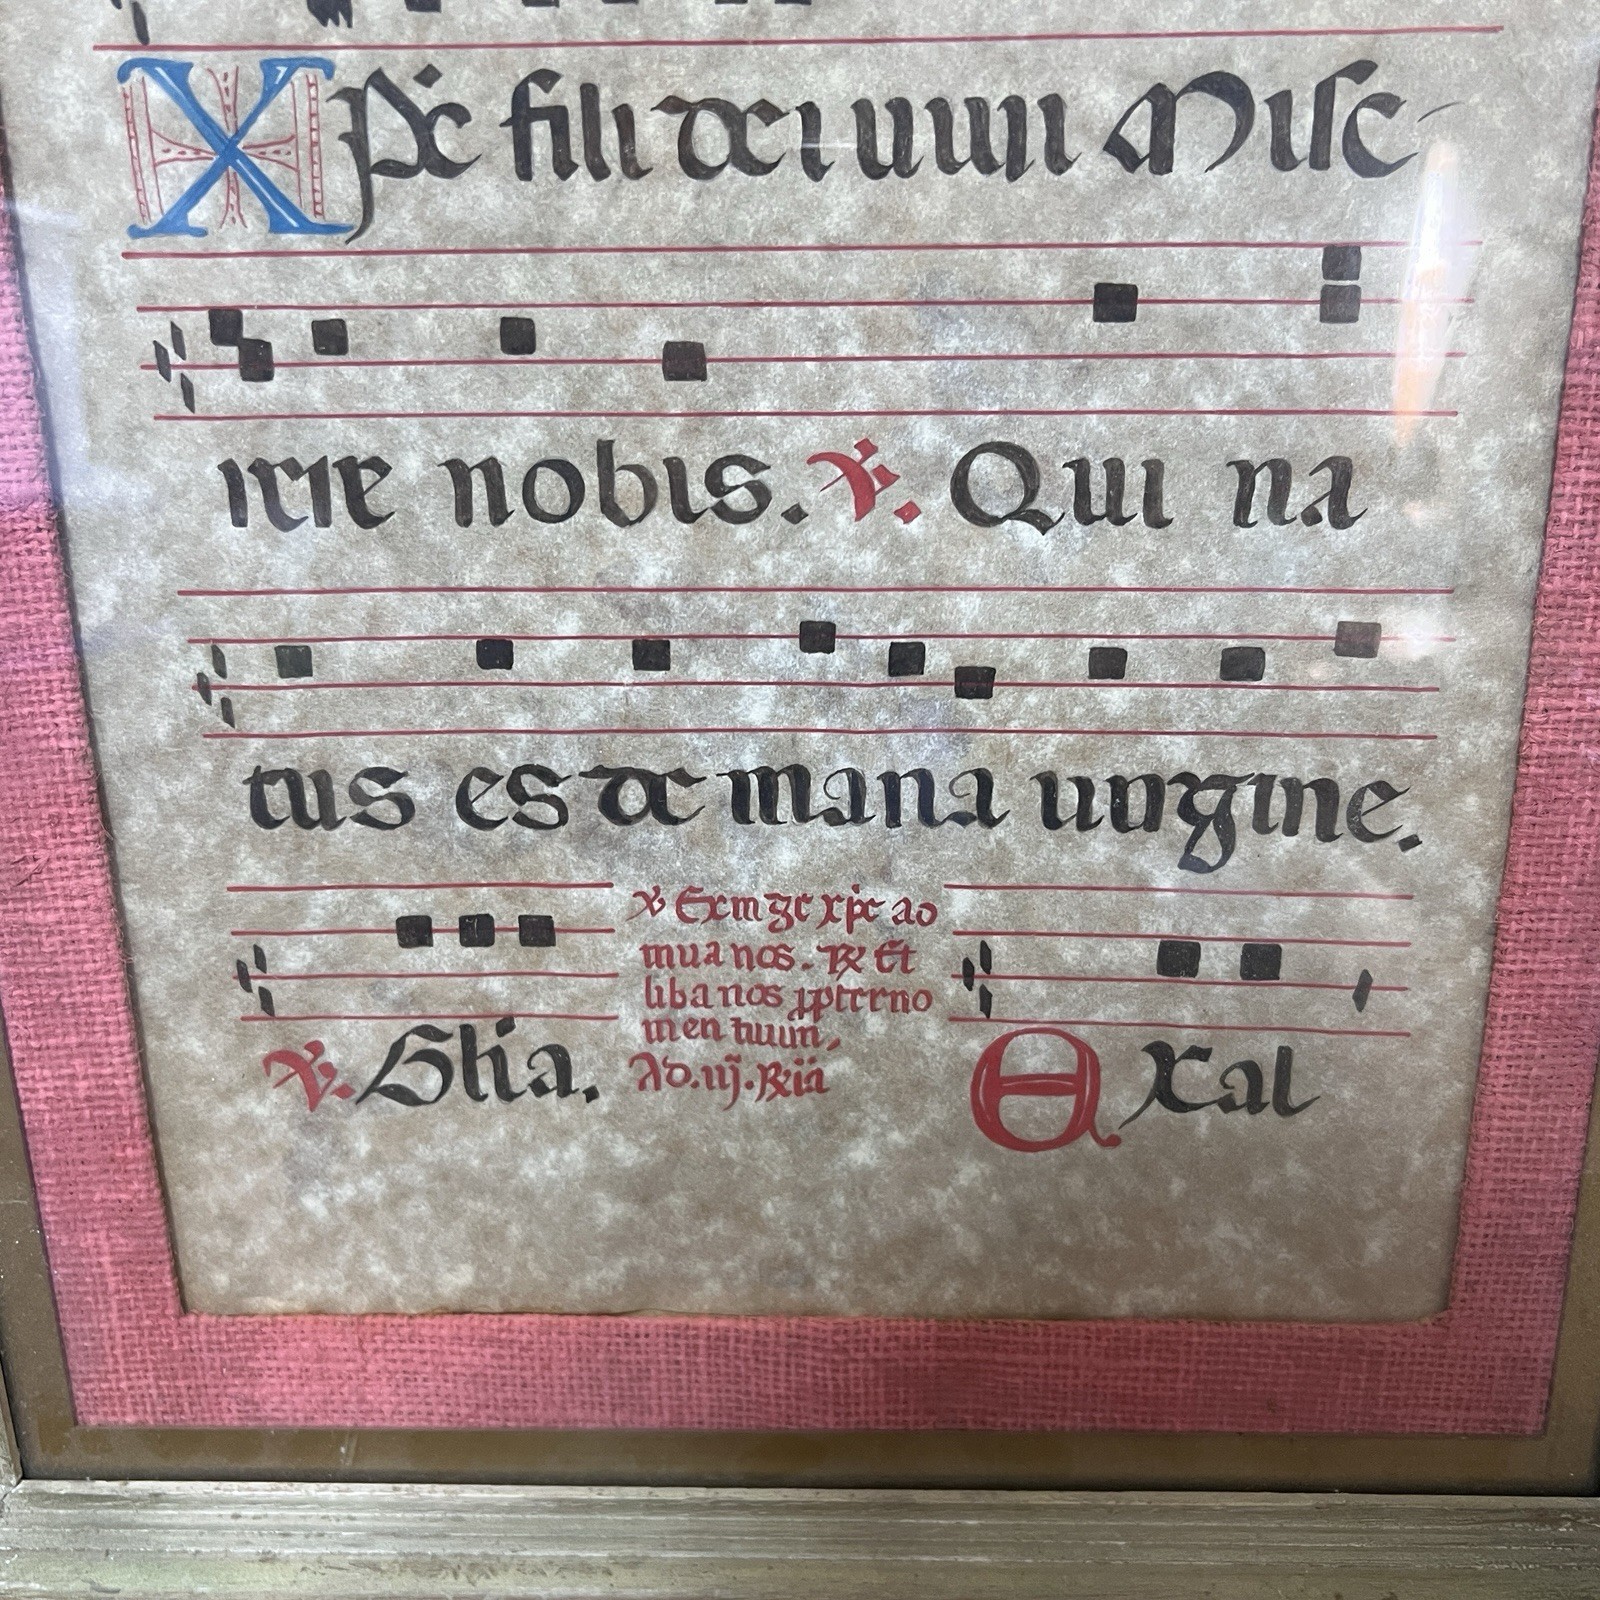 Xp̄c fili dei uiui Mise-
rere nobis. ℣. Qui na
tus es de maria uirgine.
℣. Gl'ia. ℣ Exurge xp̄e ad
iuua nos. ℟ Et
liba nos ppter no
men tuum,
Ad. iij. ℟ia
Exal